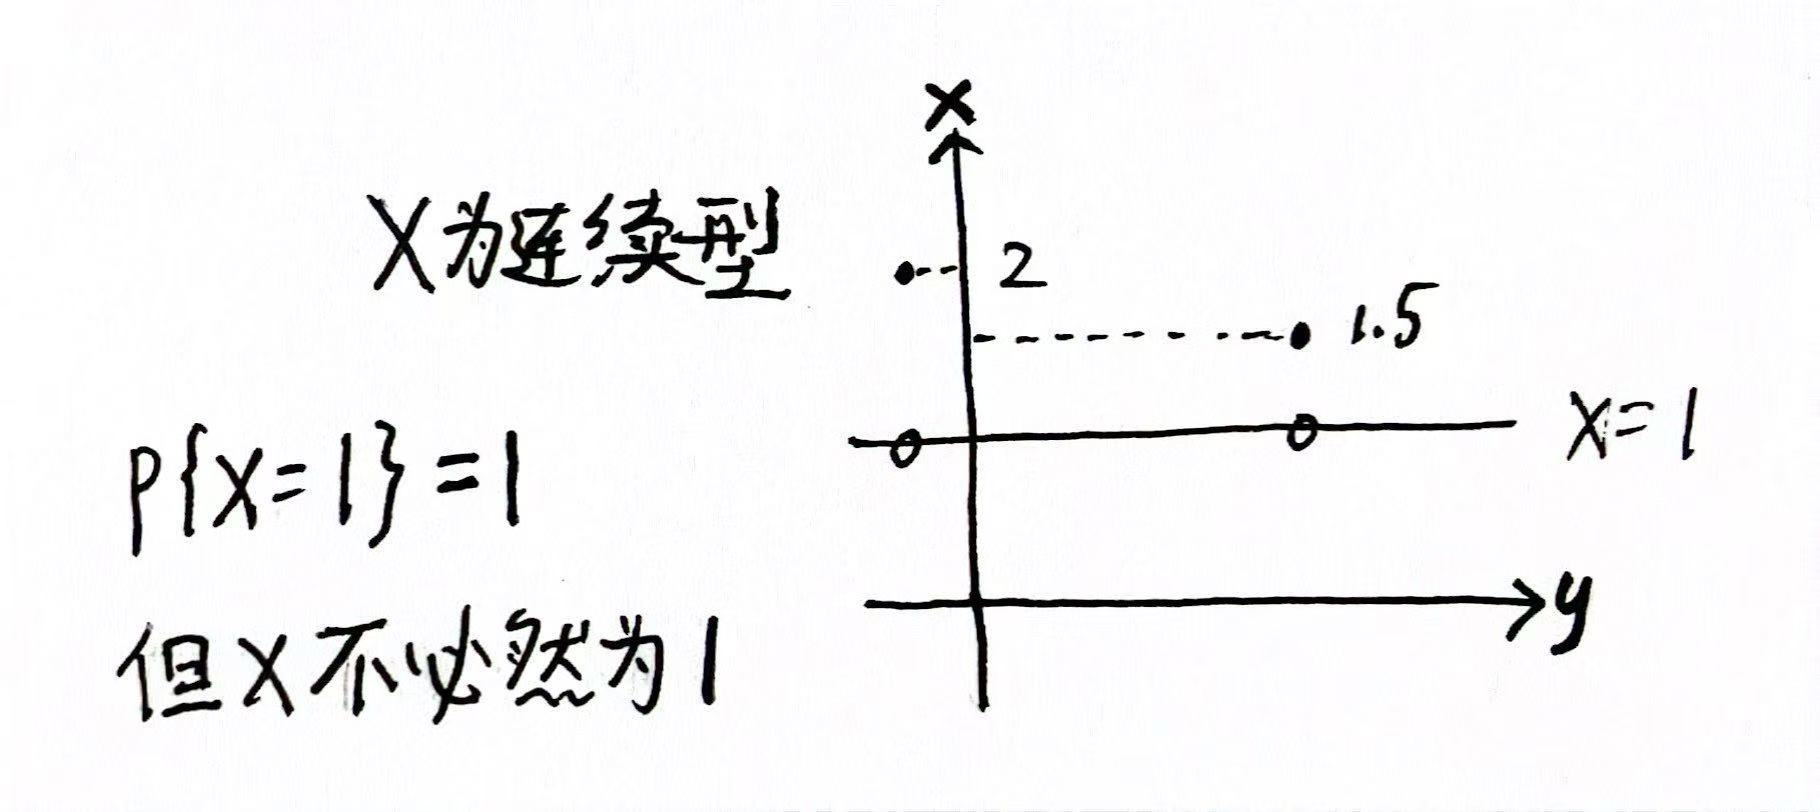 X为连续型
P{X=1}=1
但X不必然为1
x
2
1.5
X=1
y